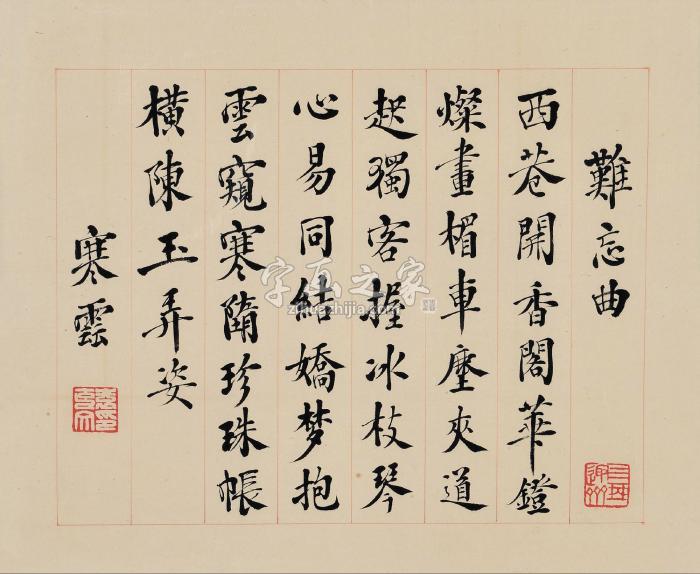 難忘曲
西巷開香閣華鐙
燦畫楣車塵夾道
起獨客握冰枝琴
心易同結嬌梦抱
雲窺寒隋珍珠帳
橫陳玉弄姿
寒雲
字画之家
zihuazhijia.com